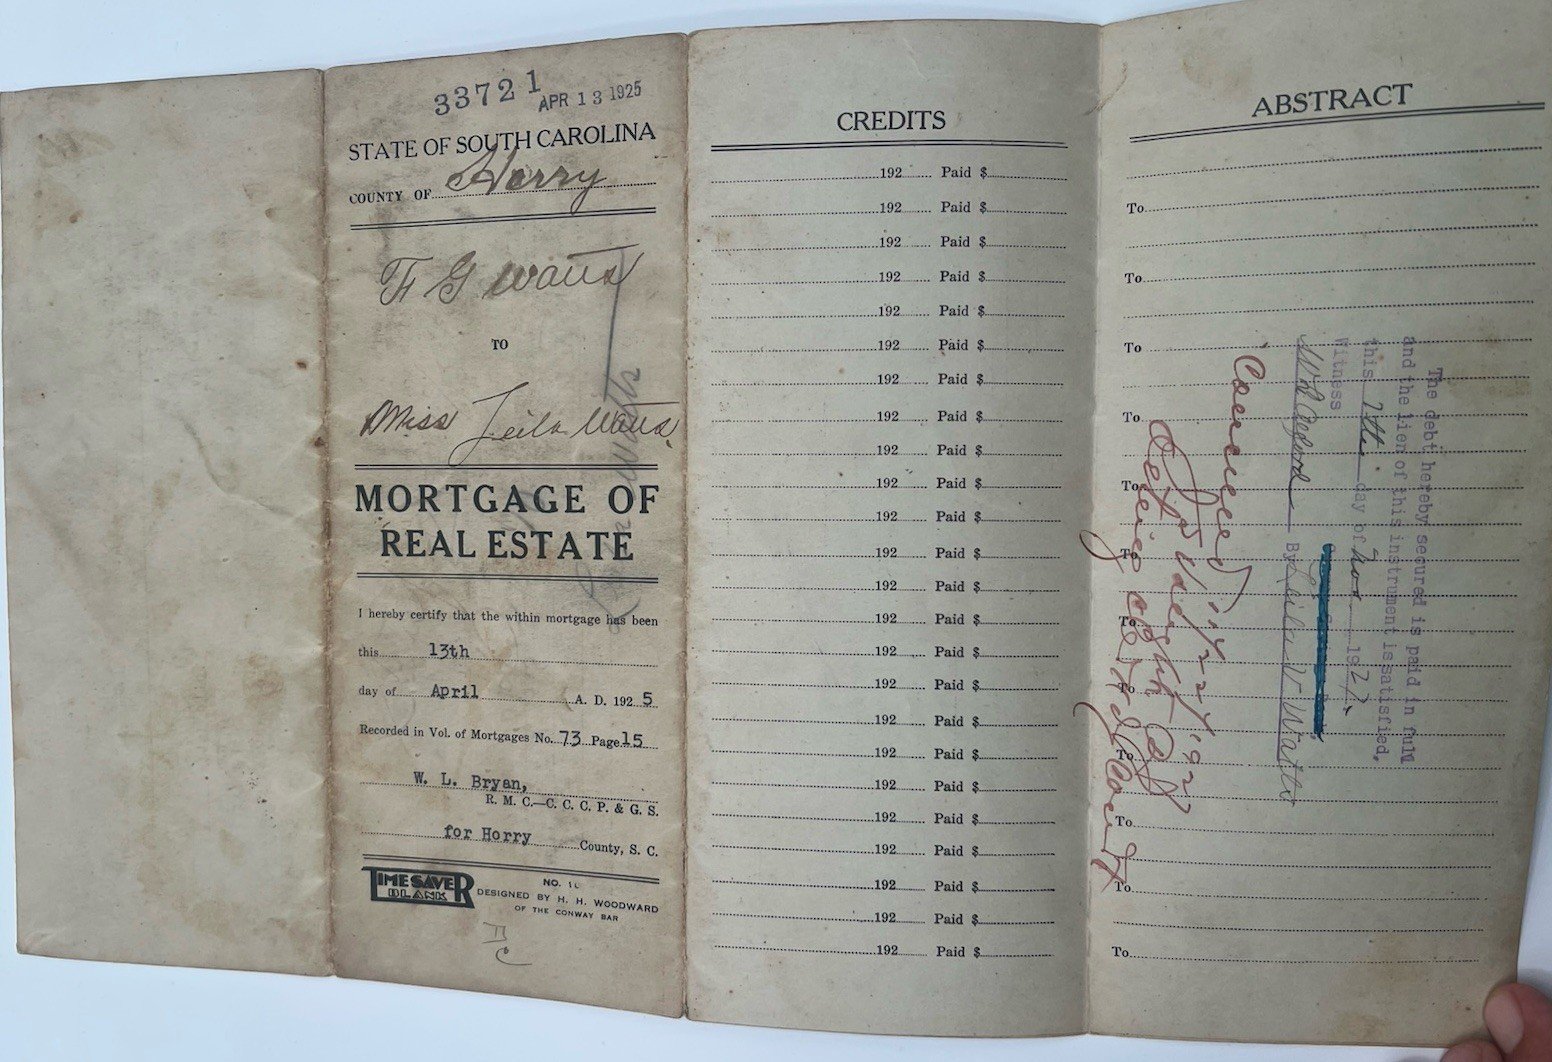 33721 APR 13 1925
STATE OF SOUTH CAROLINA
COUNTY OF Horry
F G Watts
TO
Miss Leila Watts
MORTGAGE OF
REAL ESTATE
I hereby certify that the within mortgage has been
this 13th
day of April A. D. 1925
Recorded in Vol. of Mortgages No. 73 Page 15
W. L. Bryan,
R. M. C.—C. C. C. P. & G. S.
for Horry County, S. C.
TIME SAVER
BLANK
NO. 10
DESIGNED BY H. H. WOODWARD
OF THE CONWAY BAR
Watts
CREDITS
192 Paid $
192 Paid $
192 Paid $
192 Paid $
192 Paid $
192 Paid $
192 Paid $
192 Paid $
192 Paid $
192 Paid $
192 Paid $
192 Paid $
192 Paid $
192 Paid $
192 Paid $
192 Paid $
192 Paid $
192 Paid $
192 Paid $
192 Paid $
192 Paid $
192 Paid $
192 Paid $
192 Paid $
ABSTRACT
To
To
To
To
To
To
To
To
To
To
To
To
The debt hereby secured is paid in full
and the lien of this instrument is satisfied,
this 7th day of Nov 192
Witness
By Leila V Watts
Cancelled
County